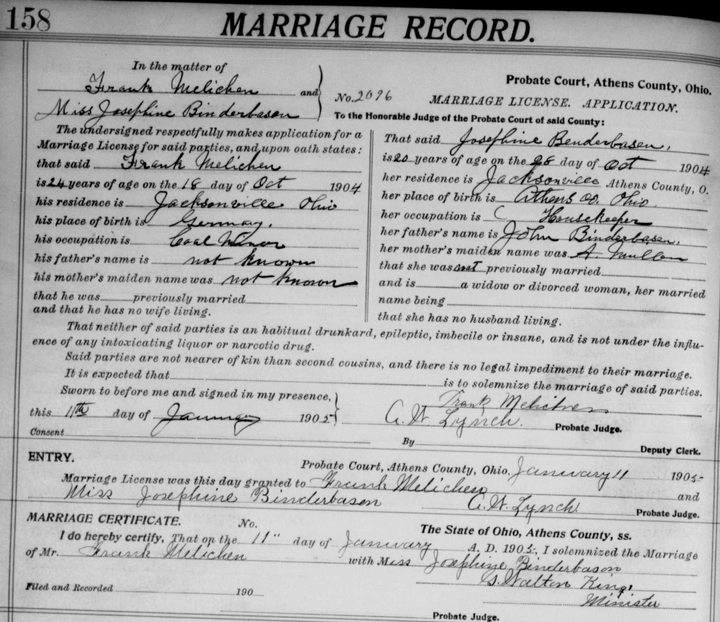 158 MARRIAGE RECORD.
In the matter of
Frank Melichen and
Miss Josephine Binderbason
No. 2096
Probate Court, Athens County, Ohio.
MARRIAGE LICENSE. APPLICATION.
To the Honorable Judge of the Probate Court of said County:
The undersigned respectfully makes application for a
Marriage License for said parties, and upon oath states:
that said Frank Melichen
is 24 years of age on the 18 day of Oct 1904
his residence is Jacksonville Ohio
his place of birth is Germay,
his occupation is Coal Minor
his father's name is not known
his mother's maiden name was not known
that he was previously married
and that he has no wife living.
That said Josephine Benderbasen,
is 20 years of age on the 28 day of Oct 1904
her residence is Jacksonville Athens County, O.
her place of birth is Athens Co. Ohio
her occupation is Housekeeper
her father's name is John Binderbasen,
her mother's maiden name was A. Mullen
that she was not previously married
and is a widow or divorced woman, her married
name being
that she has no husband living.
That neither of said parties is an habitual drunkard, epileptic, imbecile or insane, and is not under the influ-
ence of any intoxicating liquor or narcotic drug.
Said parties are not nearer of kin than second cousins, and there is no legal impediment to their marriage.
It is expected that is to solemnize the marriage of said parties.
Sworn to before me and signed in my presence, Frank Melichen
this 11th day of January 1905 A. W. Lynch. Probate Judge.
Consent By Deputy Clerk.
ENTRY. Probate Court, Athens County, Ohio, January 11 1905
Marriage License was this day granted to Frank Melichen and
Miss Josephine Binderbason A. W. Lynch Probate Judge.
MARRIAGE CERTIFICATE. No. The State of Ohio, Athens County, ss.
I do hereby certify, That on the 11" day of January A. D. 1905, I solemnized the Marriage
of Mr. Frank Melichen with Miss Josephine Binderbason
S. Walton King,
Minister
Filed and Recorded 190
Probate Judge.